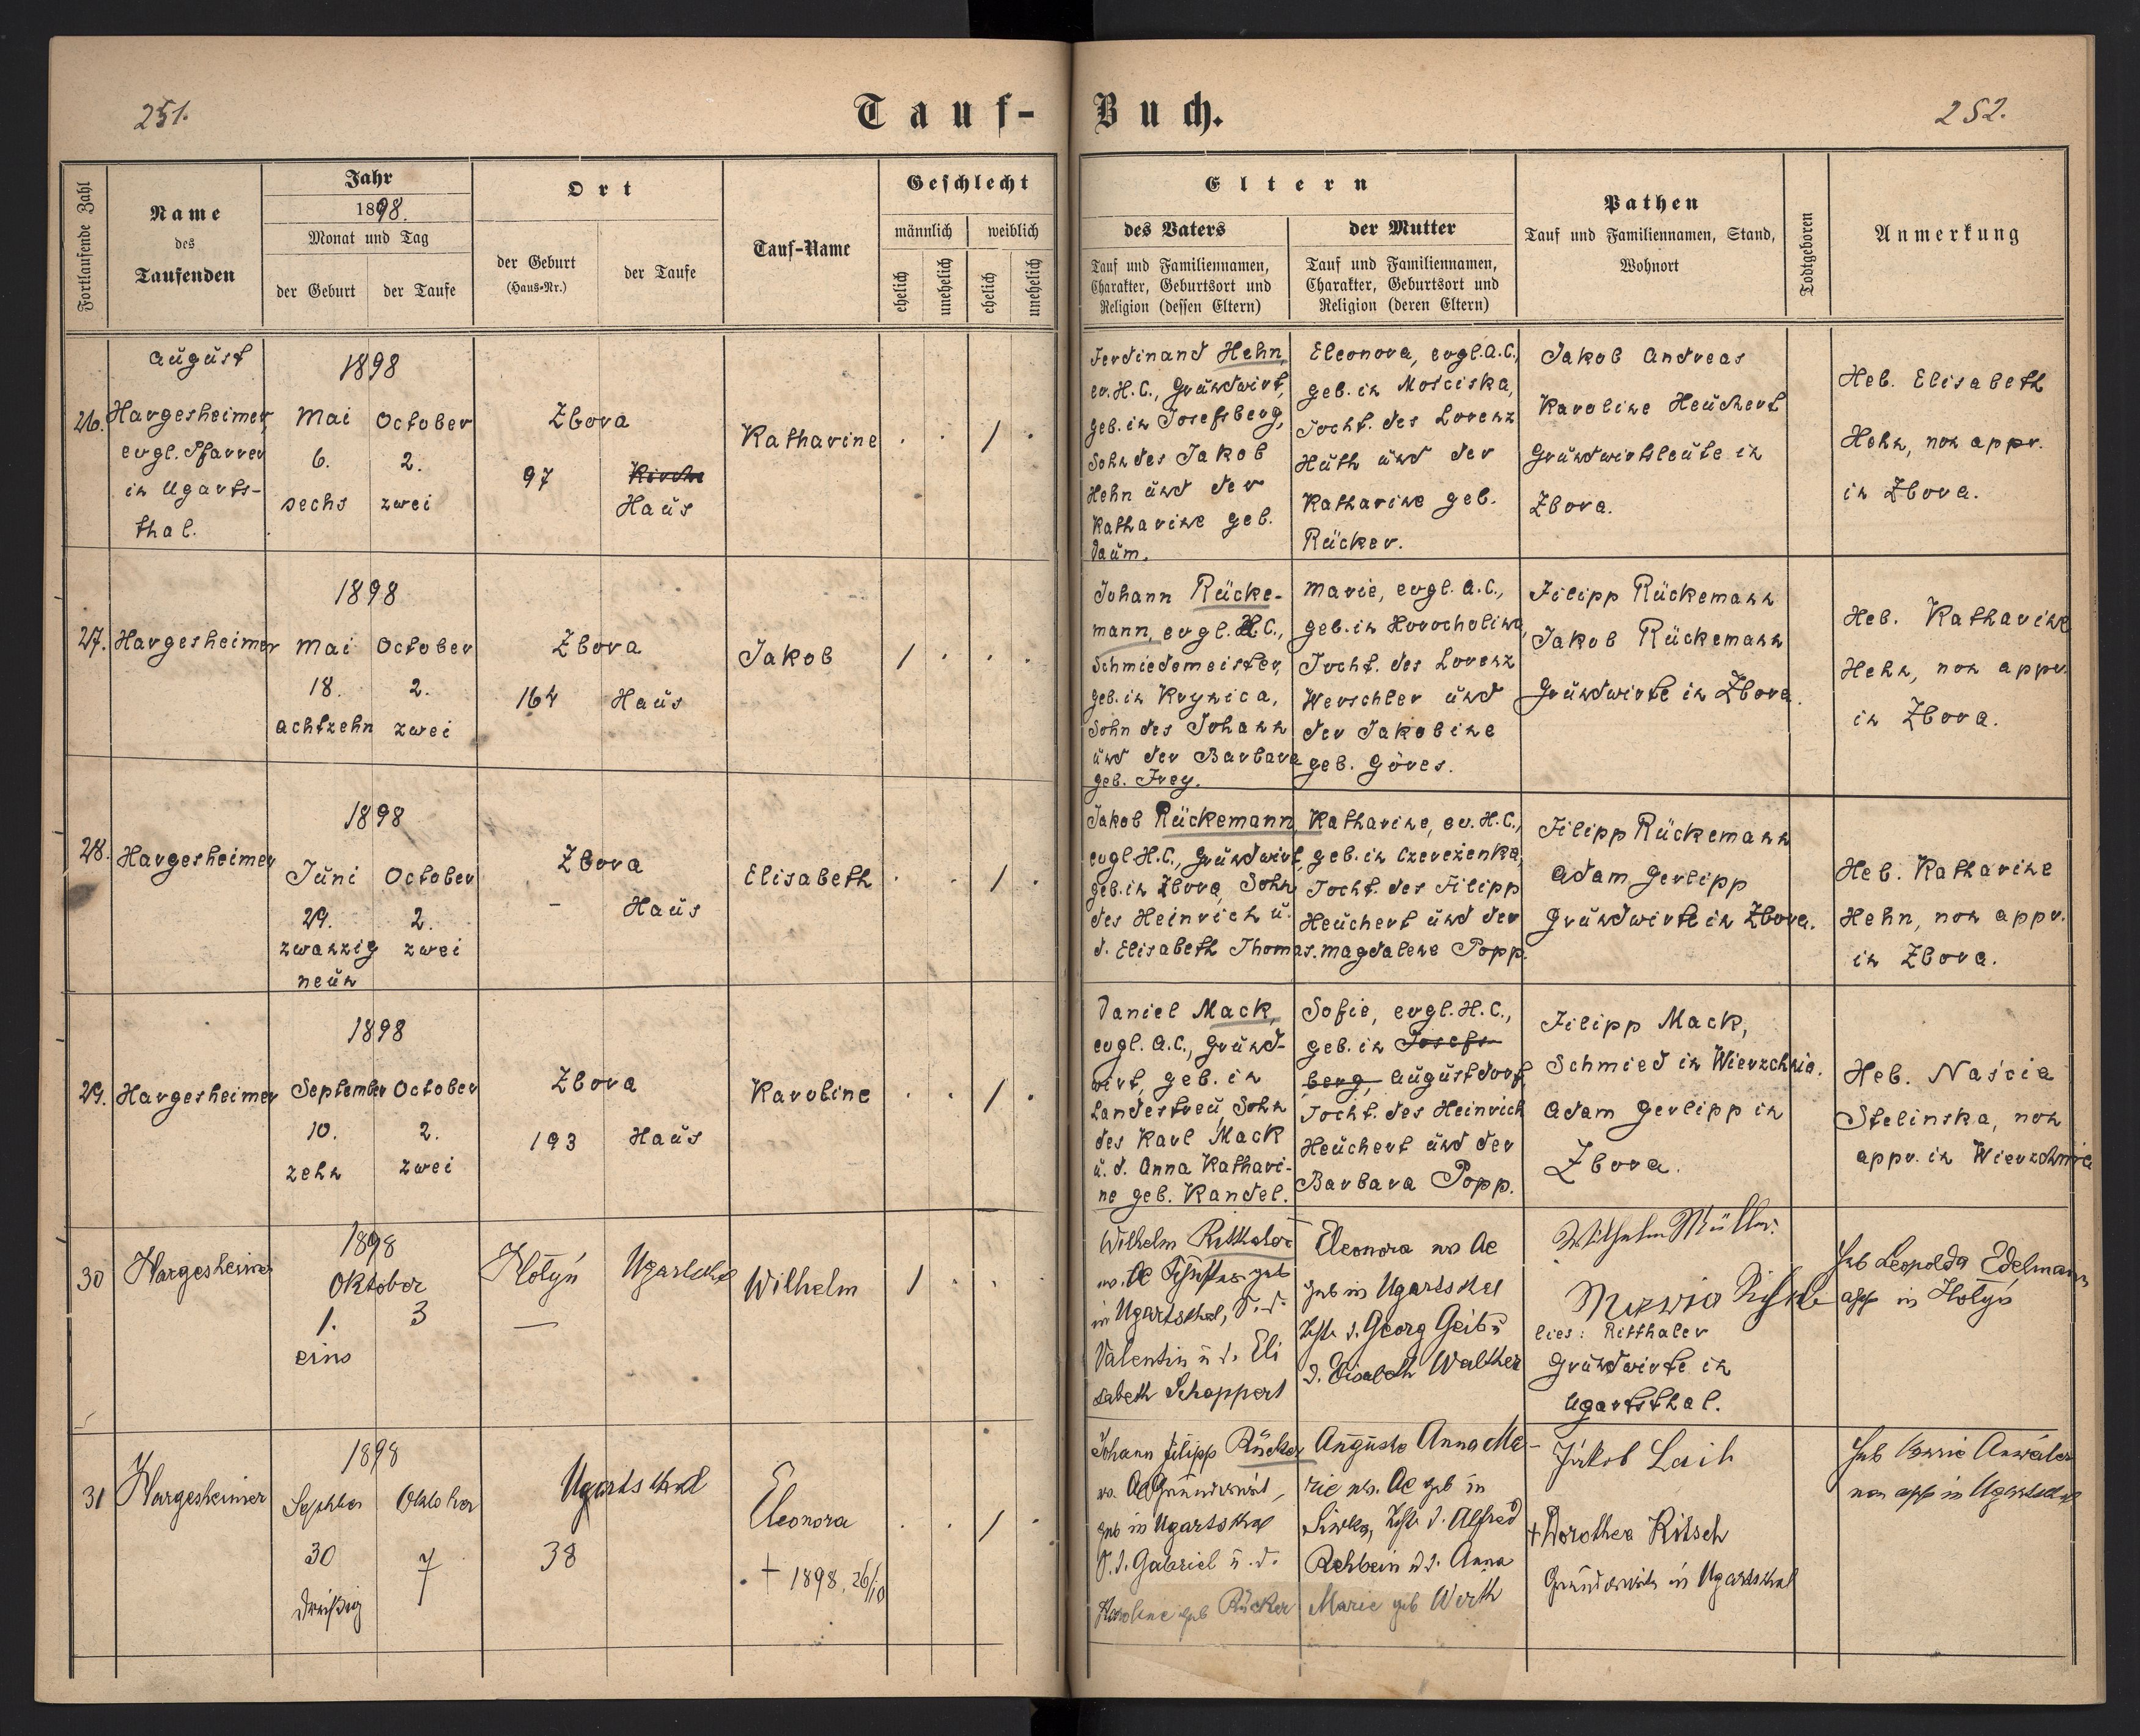 251.
Tauf-
Buch.
252.
Fortlaufende Zahl
Name
des
Taufenden
Jahr
1898.
Monat und Tag
der Geburt
der Taufe
Ort
der Geburt
(Haus-Nr.)
der Taufe
Tauf-Name
Geschlecht
männlich
weiblich
ehelich
unehelich
ehelich
unehelich
Eltern
des Vaters
Tauf und Familiennamen,
Charakter, Geburtsort und
Religion (dessen Eltern)
der Mutter
Tauf und Familiennamen,
Charakter, Geburtsort und
Religion (deren Eltern)
Pathen
Tauf und Familiennamen, Stand,
Wohnort
Todtgeboren
Anmerkung
26.
August
Hargesheimer,
evgl. Pfarrer
in Ugarts-
thal.
1898
Mai
October
6.
2.
sechs
zwei
Zbora
97
Kirche
Haus
Katharine
. . / .
Ferdinand Hehn,
ev. H. C., Grundwirt,
geb. in Josefsberg,
Sohn des Jakob
Hehn und der
Katharine geb.
Daum.
Eleonora, evgl. A. C.,
geb. in Mościska,
Tocht. des Lorenz
Huth und der
Katharine geb.
Rücker.
Jakob Andreas
Karoline Heuchert
Grundwirtsleute in
Zbora.
Heb. Elisabeth
Hehn, non appr.
in Zbora.
27.
Hargesheimer
1898
Mai
October
18.
2.
achtzehn
zwei
Zbora
164
Haus
Jakob
/ . . .
Johann Rücke-
mann, evgl. H. C.,
Schmiedemeister,
geb. in Krynica,
Sohn des Johann
und der Barbara
geb. Frey.
Marie, evgl. A. C.,
geb. in Horocholina,
Tocht. des Lorenz
Werschler und
der Jakobine
geb. Göres.
Filipp Rückemann
Jakob Rückemann
Grundwirte in Zbora.
Heb. Katharine
Hehn, non appr.
in Zbora.
28.
Hargesheimer
1898
Juni
October
29.
2.
zwanzig
zwei
neun
Zbora
-
Haus
Elisabeth
. . / .
Jakob Rückemann,
evgl H. C., Grundwirt,
geb. in Zbora, Sohn
des Heinrich u.
d. Elisabeth Thomas.
Katharine, ev. H. C.,
geb. in Czereżenka,
Tocht. des Filipp
Heuchert und der
Magdalene Popp.
Filipp Rückemann
Adam Gerlipp
Grundwirte in Zbora.
Heb. Katharine
Hehn, non appr.
in Zbora.
29.
Hargesheimer
1898
September
October
10.
2.
zehn
zwei
Zbora
193
Haus
Karoline
. . / .
Daniel Mack,
evgl. A. C., Grund-
wirt, geb. in
Landestreu, Sohn
des Karl Mack
u. d. Anna Kathari-
ne geb. Kandel.
Sofie, evgl. H. C.,
geb. in Josefs-
berg, Augustdorf,
Tocht. des Heinrich
Heuchert und der
Barbara Popp.
Filipp Mack,
Schmied in Wierzchnia.
Adam Gerlipp in
Zbora.
Heb. Naścia
Stelinska, non
appr. in Wierzchnia
30
Hargesheimer
1898
Oktober
1.
3
eins
Hołyń
Ugartsthal
—
Wilhelm
/ . . .
Wilhelm Ritthaler
geb
in Ugartsthal, S. d.
Valentin u d. Eli
sabeth Schappert
Eleonora ev Ac
geb in Ugartsthal
d. Georg Geib u
d. Elisabeth Walther
Wilhelm Müller
lies: Ritthaler
Grundwirte in
Ugartsthal.
Heb Leopolda Edelmann
app in Hołyń
31
Hargesheimer
1898
Oktober
30
7
dreißig
Ugartsthal
38
Eleonora
† 1898, 26/10
. . / .
Johann Filipp Rücker
ev. Ac Grundwirt,
geb in Ugartsthal
S. d. Gabriel u. d.
Karoline geb Rücker
Auguste Anna Ma-
rie ev. Ac geb in
Siwka, d. Alfred
Rehbein u d. Anna
Marie geb Werth
Jakob Laih
+ Dorothea Kitsch
Grundwirte in Ugartsthal
Heb Marie
non app in Ugartsthal